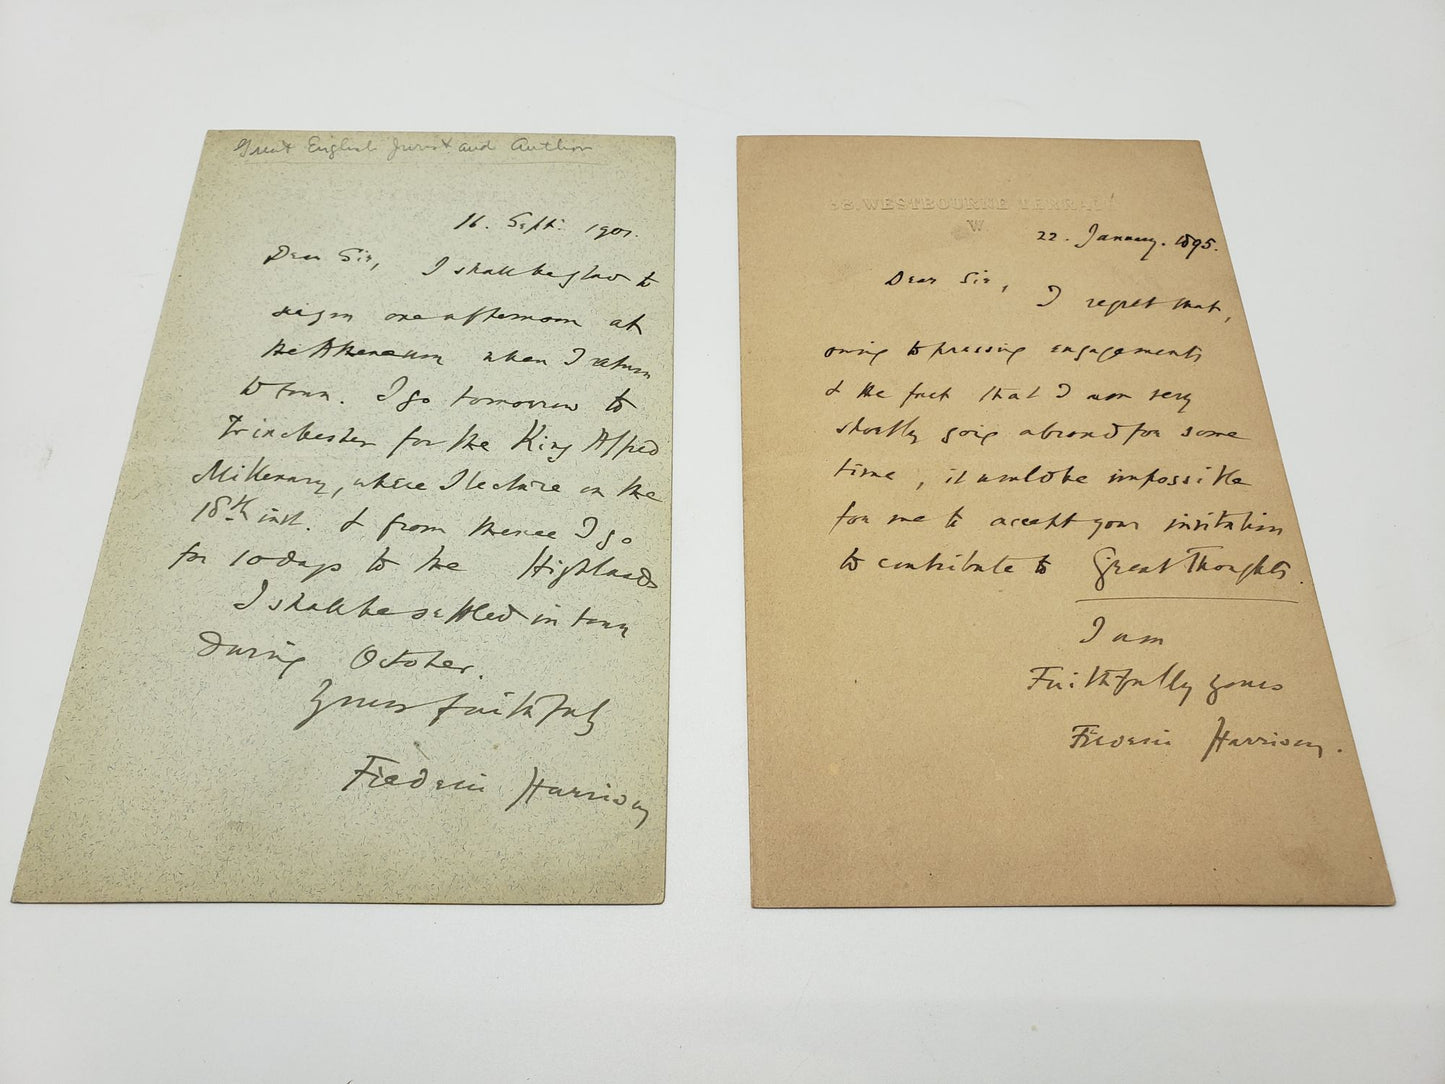 Great English Jurist and Author
16. Sept. 1901.
Dear Sir, I shall be glad to
sign one afternoon at
the Athenaeum when I return
to town. I go tomorrow to
Winchester for the King Alfred
Millenary, where I lecture on the
18th inst. & from thence I go
for 10 days to the Highlands
I shall be settled in town
during October.
Yours faithfully
Frederic Harrison
38. WESTBOURNE TERRACE
W
22. January. 1895.
Dear Sir,
I regret that,
owing to pressing engagements
& the fact that I am very
shortly going abroad for some
time, it would be impossible
for me to accept your invitation
to contribute to Great Thoughts.
I am
Faithfully yours
Frederic Harrison.